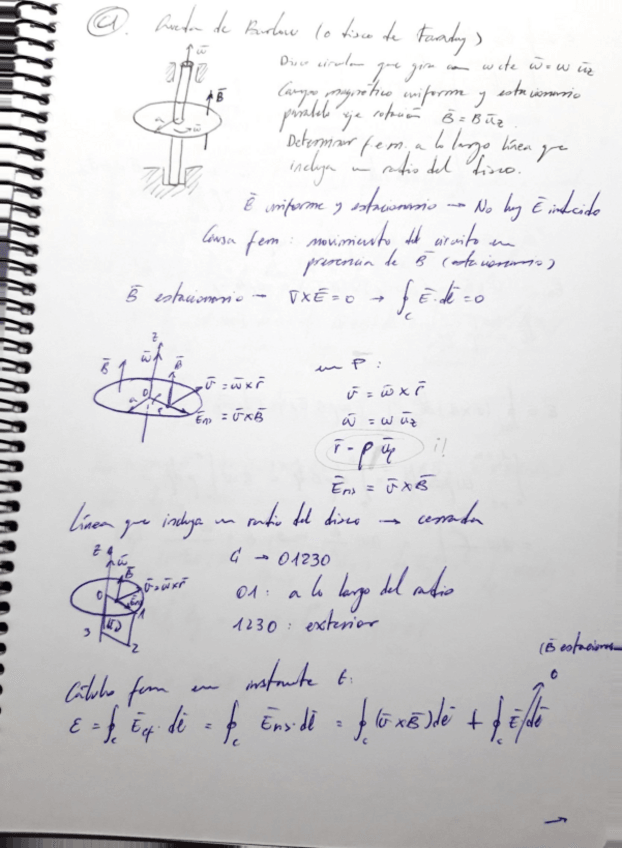 4. Rueda de Barlow (o disco de Faraday)
ω̄
B̄
a
ω̄
Disco circular que gira con ω cte ω̄ = ω ūz
Campo magnético uniforme y estacionario
paralelo eje rotación B̄ = B ūz.
Determinar f.e.m. a lo largo línea que
incluya un radio del disco.
B̄ uniforme y estacionario → No hay Ē inducido
Causa fem: movimiento del circuito en
presencia de B̄ (estacionario)
B̄ estacionario → ∇×Ē = 0 → ∮c Ē·dl̄ = 0
z
B̄ ω̄ B̄
0
a
v̄ = ω̄ × r̄
Ēns = v̄ × B̄
en P:
v̄ = ω̄ × r̄
ω̄ = ω ūz
r̄ = ρ ūρ ¡!
Ēns = v̄ × B̄
Línea que incluya un radio del disco → cerrada
z
ω̄
B̄
v̄ = ω̄×r̄
0
1
3
2
C → 01230
01: a lo largo del radio
1230: exterior
(B̄ estacionario
0
Cálculo fem en instante t:
ε = ∮c Ēef·dl̄ = ∮c Ēns·dl̄ = ∮c (v̄×B̄)dl̄ + ∮c Ē·dl̄
→